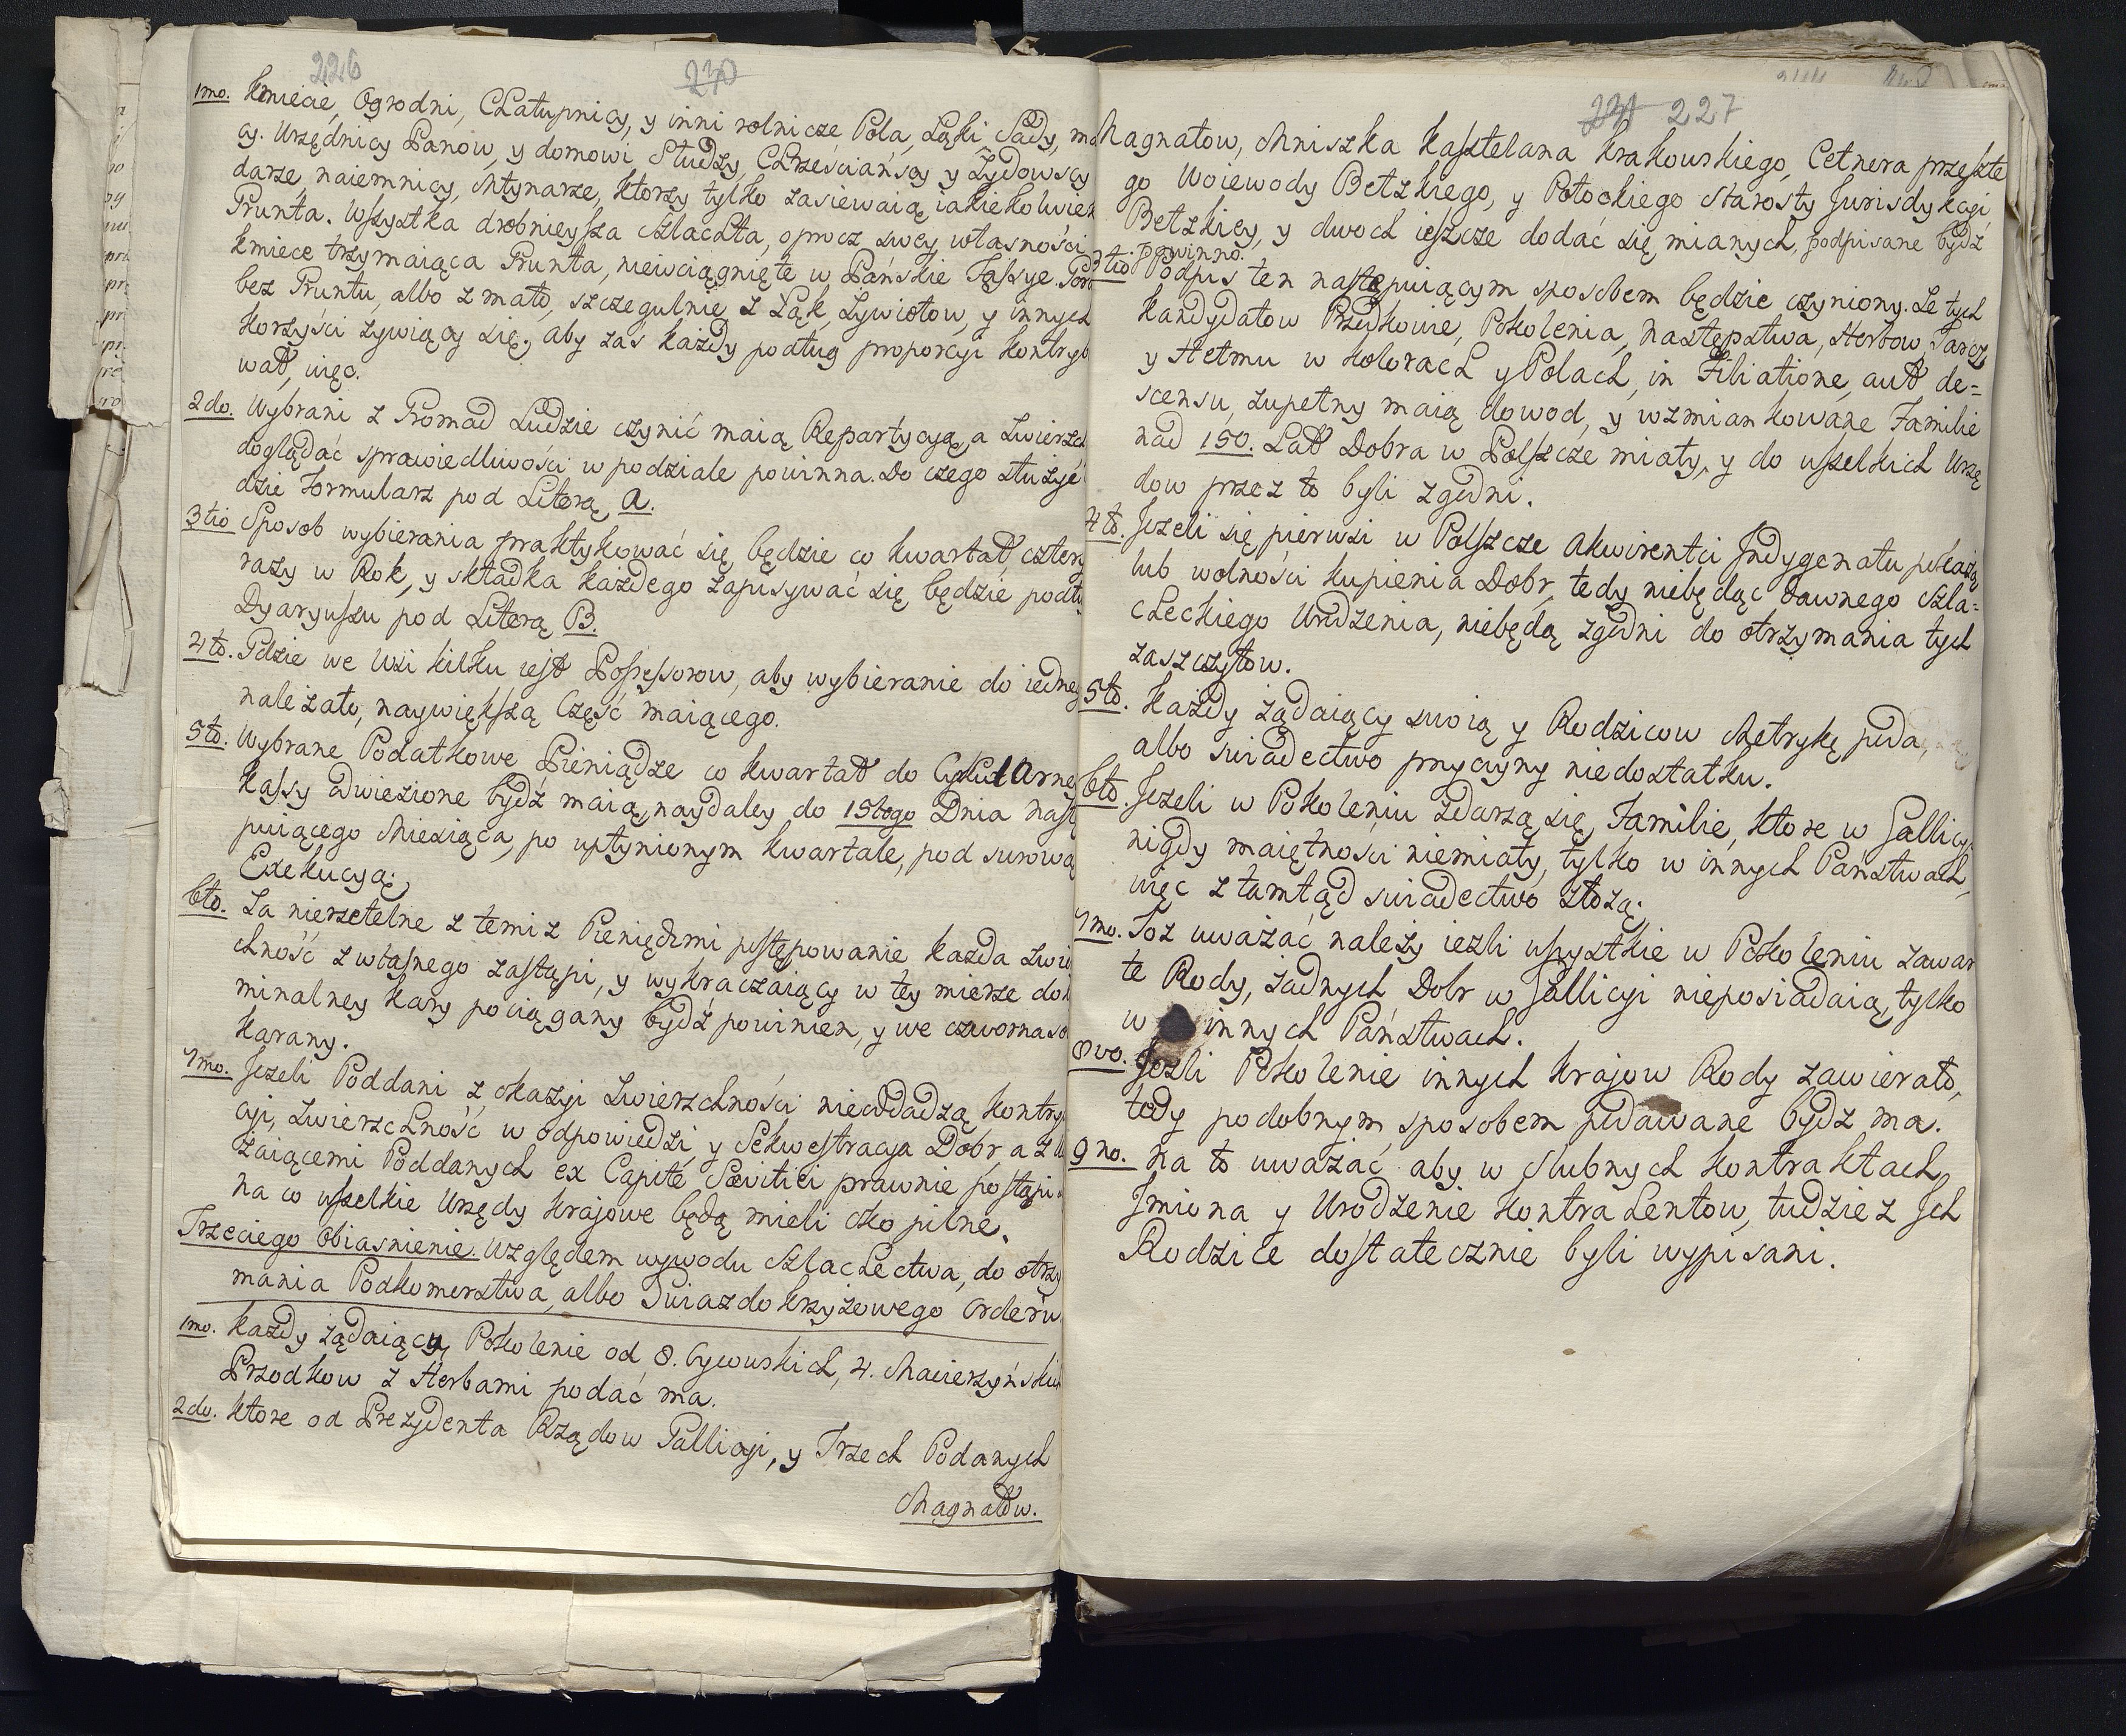 226 230
1mo. Kmiecie, Ogrodni, Chałupnicy, y inni rolnicze Pola, Łąki Sady, ma
cy. Urzędnicy Panow, y domowi Słudzy, Chrześciańscy y Żydowscy
darze, naiemnicy, Młynarze, ktorzy tylko zasiewaią iakiekolwiek
Grunta. Wszystka drobnieysza Szlachta, oprocz swey własności
kmiece trzymaiąca Grunta, niewciągnięte w Pańskie Fassye.
bez Gruntu, albo z mało, szczegulnie z Łąk, Żywiołow, y innych
korzyści żywiący się, aby zaś każdy podług proporcyi kontryb
wał, więc.
2do. Wybrani z Gromad Ludzie czynić maią Repartycyą, a Zwierzch
doglądać sprawiedliwości w podziale powinna. Do czego służyć
dzie Formularz pod Literą A.
3tio Sposob wybierania praktykować się będzie co kwartał, cztery
razy w Rok, y składka każdego zapisywać się będzie podłu
Dyaryuszu pod Literą B.
4to. Gdzie we Wsi kilku iest Possessorow, aby wybieranie do iedneg
należało, naywiększą Część maiącego.
5to. Wybrane Podatkowe Pieniądze co kwartał do Cyrkularney
Kassy odwiezione bydź maią, naydaley do 15togo Dnia nastę
puiącego Miesiąca, po upłynionym kwartale, pod surową
Exekucyą;
6to. Za nierzetelne z temiż Pieniędzmi postępowanie każda zwie
chność z własnego zastąpi, y wykraczaiący w tey mierze do k
minalney kary pociągany bydź powinien, y we czwornaso
karany.
7mo. Jezeli Poddani z okazyi Zwierzchności nieoddadzą kontry
cyi, Zwierzchność w odpowiedzi, y Sekwestracya Dobr, a z u
zaiącemi Poddanych ex Capite Sævitiei prawnie postąpi
na co wszelkie Urzędy krajowe będą mieli oko pilne.
Trzeciego Obiasnienie. Względem wywodu Szlachectwa, do otrzy
mania Podkomorstwa, albo Gwiazdo krzyżowego Orderu.
1mo. Każdy żądaiący, Pokolenie od 8. Oycowskich, 4. Macierzyńskich
Przodkow z Herbami podać ma.
2do. Ktore od Prezydenta Rządow Gallicyi, y Trzech Podanych
Magnatow.
231 227
Magnatow, Mniszka Kasztelana Krakowskiego, Cetnera przeszłe
go Woiewody Bełzkiego, y Potockiego Starosty Jurisdykcyi
Bełzkiey, y dwoch ieszcze dodać się mianych, podpisane bydź
powinno.
3tio Podpis ten następuiącym sposobem będzie czyniony. Ze tych
Kandydatow Przodkowie, Pokolenia, Następstwa, Herbow, Tarczy
y Hełmu w kolorach y Polach, in Filiatione, aut de=
scensu, zupełny maią dowod, y wzmiankowane Familie
nad 150. Lat Dobra w Polszcze miały, y do wszelkich Urzę
dow przez to byli zgodni.
4to. Jezeli się pierwsi w Polszcze Akwirentci Indygenatu pokażą
lub wolności kupienia Dobr, tedy niebędąc dawnego Szla=
checkiego Urodzenia, niebędą zgodni do otrzymania tych
zaszczytow.
5to. Każdy żądaiący swoią y Rodzicow Metrykę poda,
albo swiadectwo przyczyny niedostatku.
6to. Jezeli w Pokoleniu zdarzą się Familie, ktore w Gallicyi
nigdy maiętności niemiały, tylko w innych Państwach,
więc z tamtąd swiadectwo złożą;
7mo. Toż uważać należy iezli wszystkie w Pokoleniu zawar
te Rody, żadnych Dobr w Gallicyi nieposiadaią, tylko
w innych Państwach.
8vo. Jezli Pokolenie innych Krajow Rody zawierało,
tedy podobnym sposobem podawane bydz ma.
9no. Na to uważać aby w Slubnych Kontraktach,
Imiona y Urodzenie Kontrahentow, tudzież Ich
Rodzice dostatecznie byli wypisani.